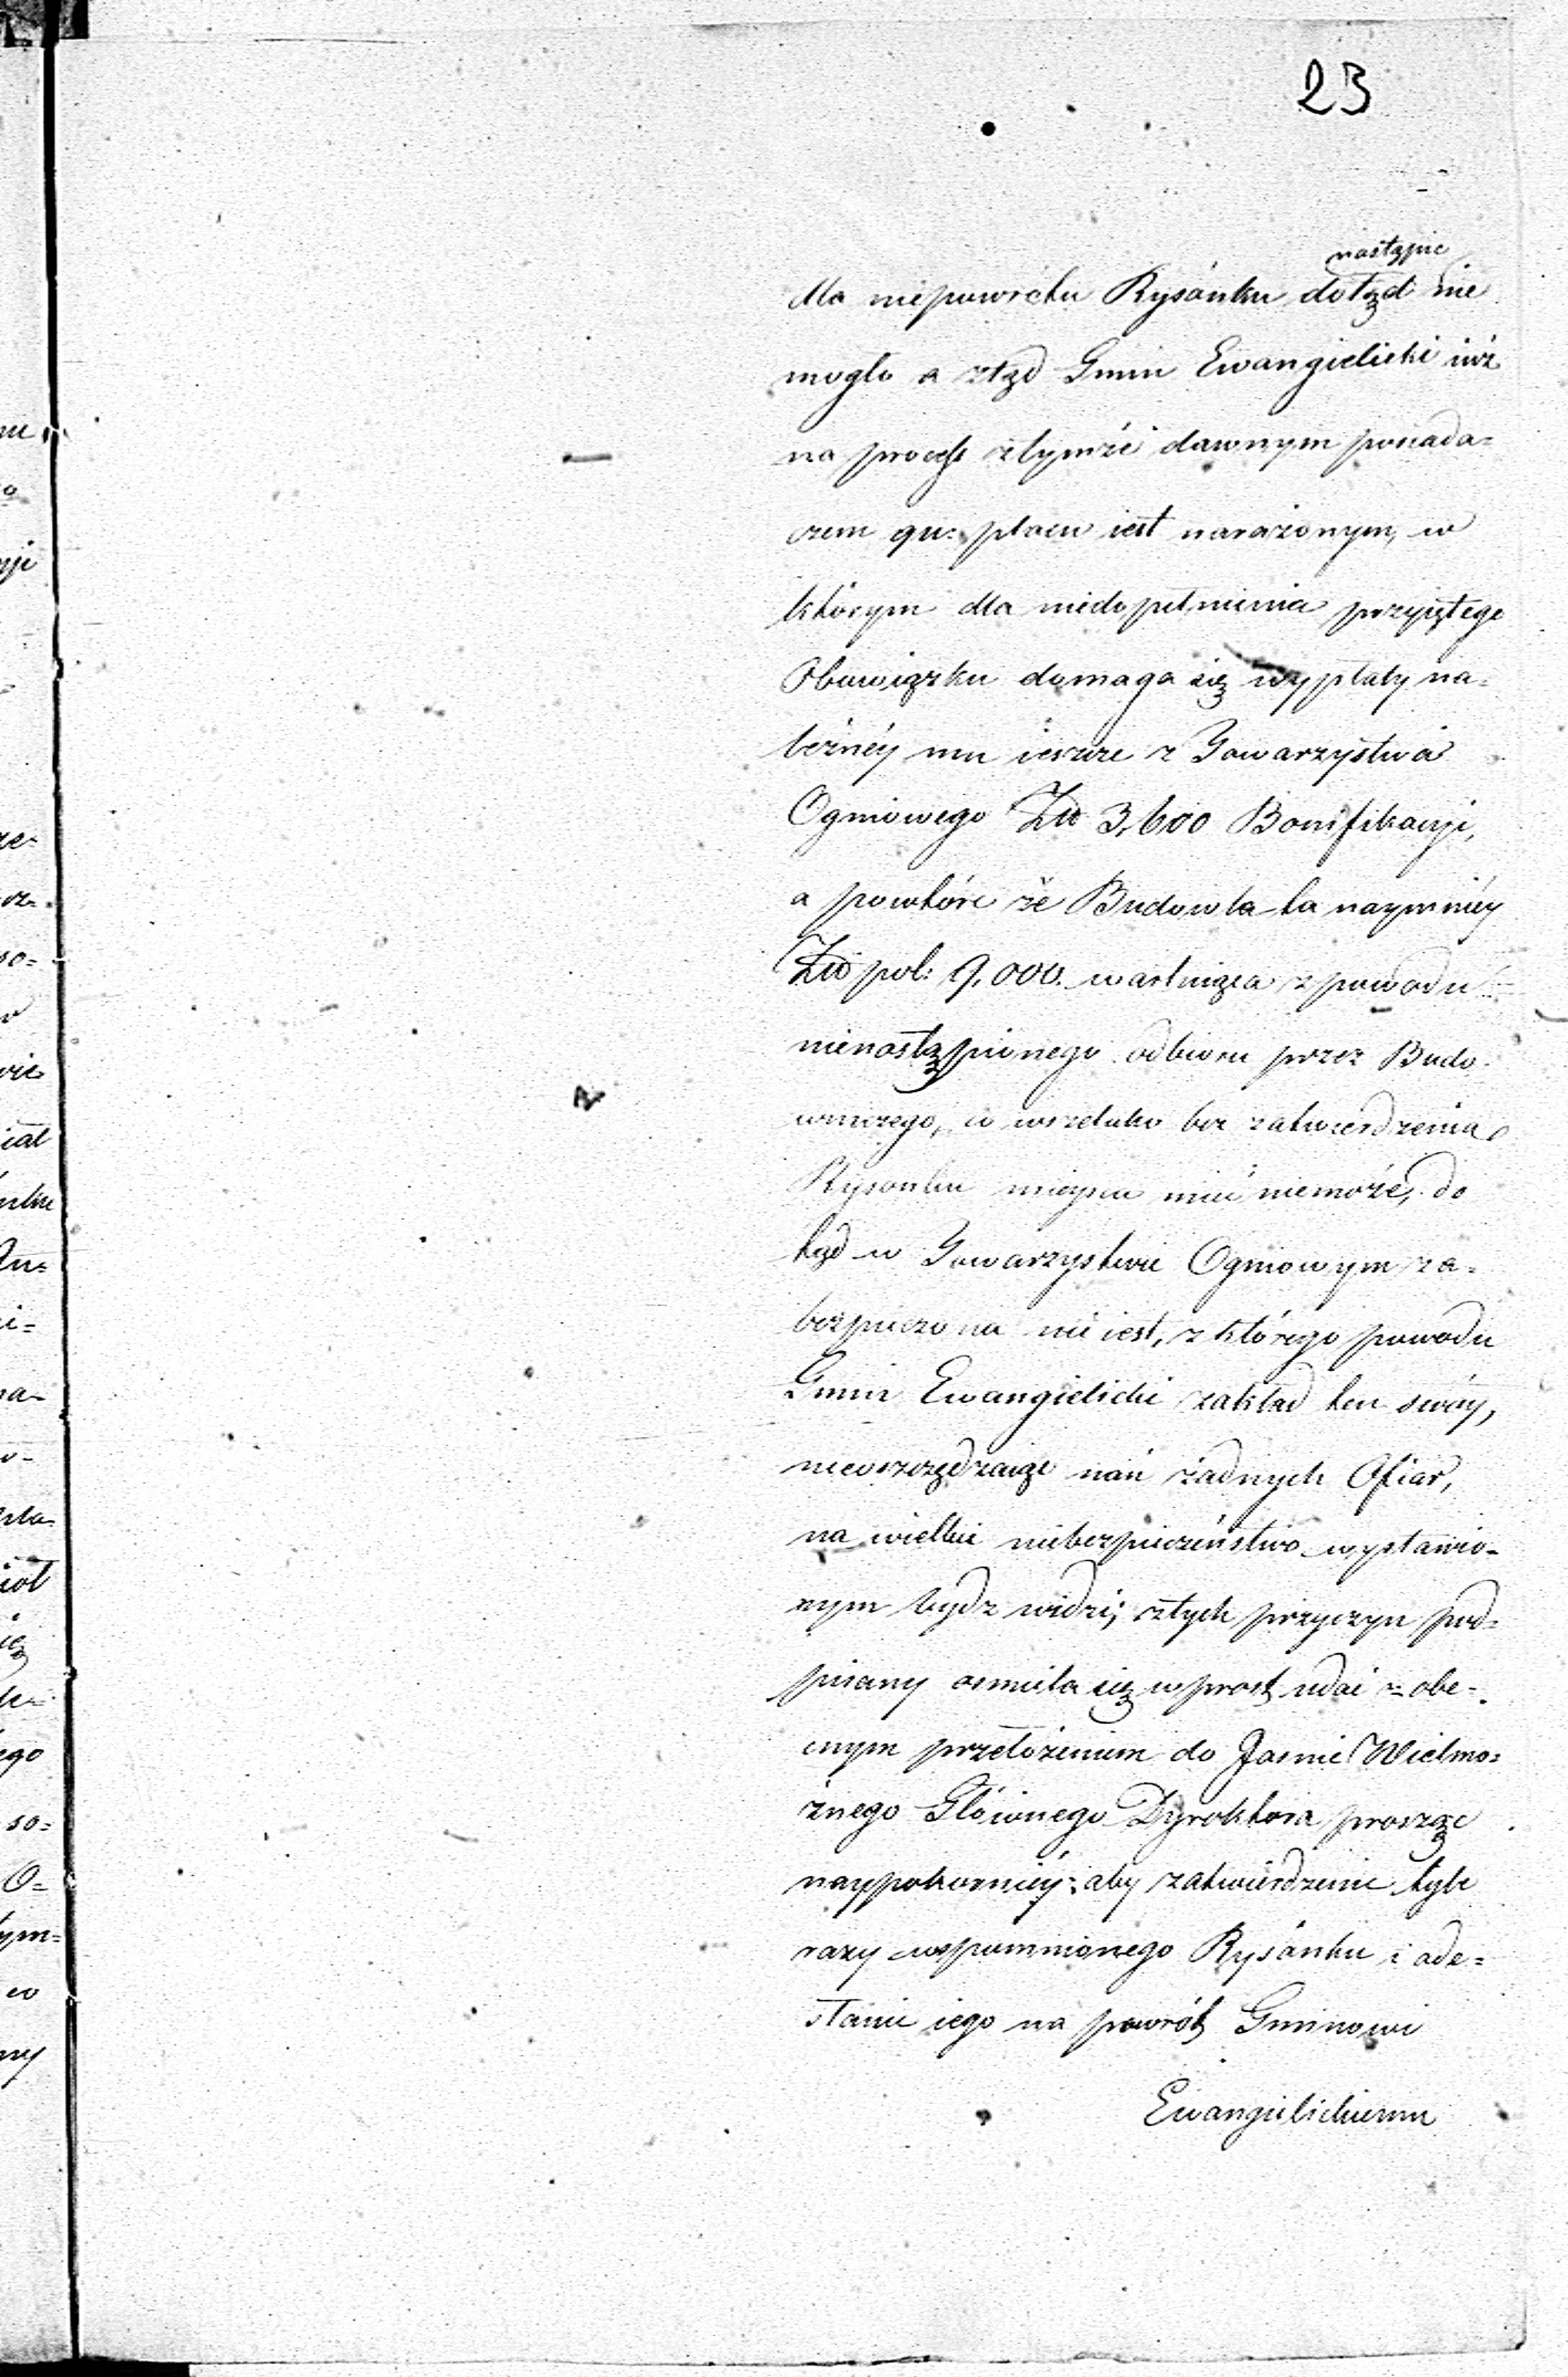 23
nastąpić
dla niepowrotu Rysunku dotąd nie
mogło a ztąd Gmin Ewangielicki iuż
na process ztymże dawnym posiada=
czem qu: placu iest narażonym, w
którym dla niedopełnienia przyiętego
Obowiązku domaga się wypłaty na=
leżnéy mu ieszcze z Towarzystwa
Ogniowego Złł 3,600 Bonifikacyi,
a powtóre że Budowla ta naymniéy
Złł pol: 9,000. wartuiąca z powodu
nienastąpionego odbioru przez Budo=
wniczego, co wszelako bez zatwierdzenia
Rysunku mieysca mieć niemoże, do
tąd w Towarzystwie Ogniowym za=
bezpieczona nie iest, z którego powodu
Gmin Ewangielicki zakład ten swóy,
nieoszczędzaiąc nań żadnych Ofiar,
na wielkie niebezpieczeństwo wystawio=
nym bydz widzi; ztych przyczyn pod=
pisany ośmiela się wprost udać z obe=
cnym przełożeniem do Jaśnie Wielmo=
żnego Głównego Dyrektora prosząc
naypokorniéy: aby zatwierdzenie tyle
razy wspomnionego Rysunku i ode=
słanie iego na powrót Gminowi
Ewangielickiemu